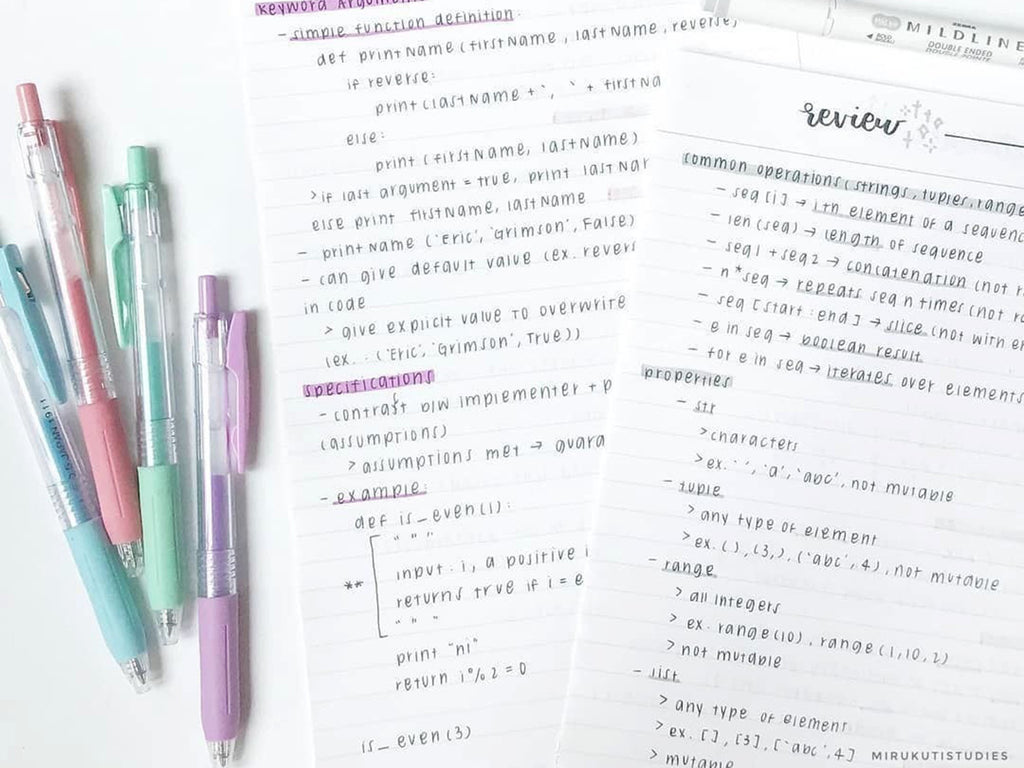 keyword
- simple function definition:
def printName (firstName, lastName, reverse)
if reverse:
print (lastName + ', ' + firstNa
else:
print (firstName, lastName)
> if last argument = true, print lastNar
else print firstName, lastName
- printName ('Eric', 'Grimson', False)
- can give default value (ex. revers
in code
> give explicit value to overwrite
(ex. : ('Eric', 'Grimson', True))
specifications
- contrast b/w implementer + p
(assumptions)
> assumptions met → guara
- example:
def is_even(i):
" " "
** input: i, a positive i
returns true if i = e
" " "
print "hi"
return i % 2 = 0
is_even(3)
ZEBRA
MILDLINE
DOUBLE ENDED
DOUBLE POINTE
review
common operations (strings, tuples, range
- seq [i] → ith element of a sequenc
- len (seq) → length of sequence
- seq1 + seq2 → concatenation (not r
- n * seq → repeats seq n times (not ra
- seq [start : end] → slice (not with
- e in seq → boolean result
- for e in seq → iterates over elements
properties
- str
> characters
> ex. '', 'a', 'abc', not mutable
- tuple
> any type of element
> ex. (), (3,), ('abc', 4), not mutable
- range
> all integers
> ex. range(10), range (1,10,2)
> not mutable
- list
> any type of element
> ex. [], [3], ['abc', 4]
> mutable
JAPAN
MIRUKUTISTUDIES